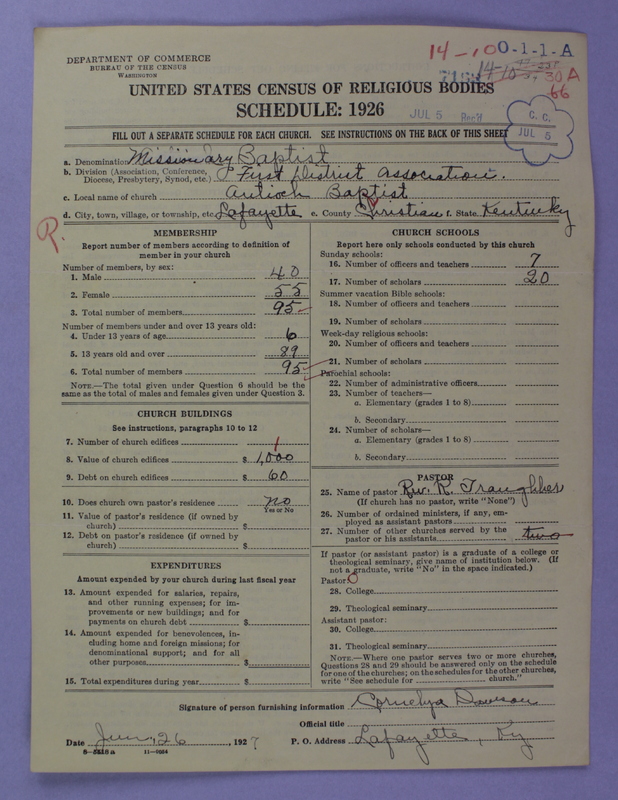 14-10 0-1-1-A
DEPARTMENT OF COMMERCE
BUREAU OF THE CENSUS
WASHINGTON
30 A
66
UNITED STATES CENSUS OF RELIGIOUS BODIES
SCHEDULE: 1926
JUL 5 Rec'd
C. C.
JUL 5
FILL OUT A SEPARATE SCHEDULE FOR EACH CHURCH. SEE INSTRUCTIONS ON THE BACK OF THIS SHEET
a. Denomination Missionary Baptist
b. Division (Association, Conference, Diocese, Presbytery, Synod, etc.) First District Association.
c. Local name of church Antioch Baptist
d. City, town, village, or township, etc. Lafayette e. County Christian f. State Kentucky
R.
MEMBERSHIP
Report number of members according to definition of
member in your church
Number of members, by sex:
1. Male 40
2. Female 55
3. Total number of members 95
Number of members under and over 13 years old:
4. Under 13 years of age 6
5. 13 years old and over 89
6. Total number of members 95
NOTE.—The total given under Question 6 should be the
same as the total of males and females given under Question 3.
CHURCH BUILDINGS
See instructions, paragraphs 10 to 12
7. Number of church edifices 1
8. Value of church edifices $ 1,000
9. Debt on church edifices $ 60
10. Does church own pastor's residence no
Yes or No
11. Value of pastor's residence (if owned by
church) $
12. Debt on pastor's residence (if owned by
church) $
EXPENDITURES
Amount expended by your church during last fiscal year
13. Amount expended for salaries, repairs,
and other running expenses; for im-
provements or new buildings; and for
payments on church debt $
14. Amount expended for benevolences, in-
cluding home and foreign missions; for
denominational support; and for all
other purposes $
15. Total expenditures during year $
CHURCH SCHOOLS
Report here only schools conducted by this church
Sunday schools:
16. Number of officers and teachers 7
17. Number of scholars 20
Summer vacation Bible schools:
18. Number of officers and teachers
19. Number of scholars
Week-day religious schools:
20. Number of officers and teachers
21. Number of scholars
Parochial schools:
22. Number of administrative officers
23. Number of teachers—
a. Elementary (grades 1 to 8)
b. Secondary
24. Number of scholars—
a. Elementary (grades 1 to 8)
b. Secondary
PASTOR
25. Name of pastor Rev. R. Traughber
(If church has no pastor, write "None")
26. Number of ordained ministers, if any, em-
ployed as assistant pastors
27. Number of other churches served by the
pastor or his assistants two
If pastor (or assistant pastor) is a graduate of a college or
theological seminary, give name of institution below. (If
not a graduate, write "No" in the space indicated.)
Pastor: 0
28. College
29. Theological seminary
Assistant pastor:
30. College
31. Theological seminary
NOTE.—Where one pastor serves two or more churches,
Questions 28 and 29 should be answered only on the schedule
for one of the churches; on the schedules for the other churches,
write "See schedule for church."
Signature of person furnishing information Cornelya Dawson
Official title
Date June, 26, 1927 P. O. Address Lafayette, Ky
8-5318a 11-9664